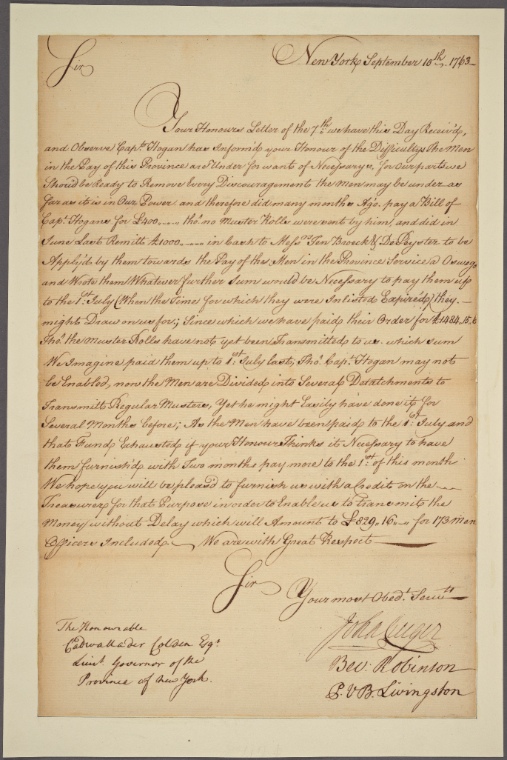 New York September 10th. 1763
Sir
Your Honours Letter of the 7th. we have this Day Receiv'd,
and Observe Capt. Hogan has Informd your Honour of the Difficultys the Men
in the Pay of this Province are Under for want of Necessarys. for Our parts we
Should be Ready to Remove Every Discouragement the Men may be under as
far as it is in Our Power and therefore did many months Ago. pay a Bill of
Capt. Hogans for £400.... tho. no Muster Rolls were sent by him, and did in
June Last Remitt £1000.... in Cash to Messrs. Ten Broeck & De Peyster to be
Applyd by them towards the Pay of the Men in the Province Service @ Oswego
and Wrote them Whatever further Sum would be Necessary to pay them up
to the 1st. July (When the Times for which they were Inlisted Expired) they
might Draw on us for; Since which we have paid their Order for £1484.15.6
Tho. the Muster Rolls have not yet been Transmitted to us. which Sum
We Imagine paid them up to 1st. July last, Tho. Capt. Hogan may not
be Enabled, now the Men are Divided into Several Detatchments to
Transmitt Regular Musters, Yet he might Easily have done it for
Several Months before; As the Men have been paid to the 1st. July and
that Fund Exhausted if your Honour Thinks it Necessary to have
them furnish'd with Two months pay more to the 1st. of this month
We hope you will be pleased to furnish us with a Credit on the
Treasurer for that Purpose in order to Enable us to transmitt the
Money without Delay which will Amount to £829.16 for 173 Men
Officers Included, We are with Great Respect
Sir
Your most Obedt. Servts
John Cruger
Bev: Robinson
P: V B: Livingston
The Honourable
Cadwallader Colden Esqr.
Lieut. Governor of the
Province of New York.